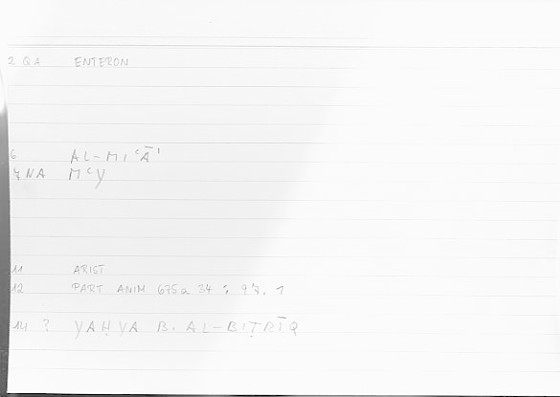 2 QA ENTERON
6 AL-MIʿĀʾ
NA MʿY
11 ARIST
12 PART ANIM 675a 34 ; 97. 1
14 ? YAḤYA B. AL-BIṬRĪQ